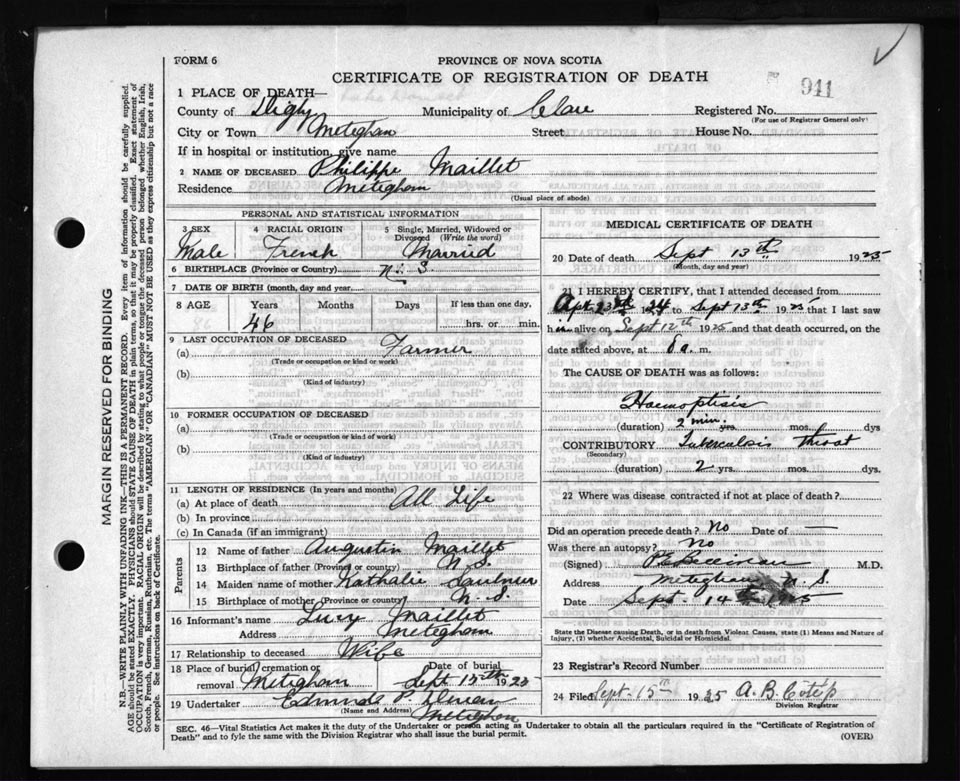 FORM 6
PROVINCE OF NOVA SCOTIA
CERTIFICATE OF REGISTRATION OF DEATH
941
1 PLACE OF DEATH—
County of Digby Municipality of Clare Registered No.
(For use of Registrar General only)
City or Town Meteghan Street House No.
If in hospital or institution, give name
2 NAME OF DECEASED Philippe Maillet
Residence Meteghan
(Usual place of abode)
PERSONAL AND STATISTICAL INFORMATION
3 SEX 4 RACIAL ORIGIN 5 Single, Married, Widowed or Divorced (Write the word)
Male French Married
6 BIRTHPLACE (Province or Country) N. S.
7 DATE OF BIRTH (month, day and year)
8 AGE Years Months Days If less than one day,
46 hrs. or min.
9 LAST OCCUPATION OF DECEASED
(a) Farmer
(Trade or occupation or kind or work)
(b)
(Kind of industry)
10 FORMER OCCUPATION OF DECEASED
(a)
(Trade or occupation or kind of work)
(b)
(Kind of industry)
11 LENGTH OF RESIDENCE (In years and months)
(a) At place of death All Life
(b) In province
(c) In Canada (if an immigrant)
Parents
12 Name of father Augustin Maillet
13 Birthplace of father (Province or country) N. S.
14 Maiden name of mother Nathalie Saulnier
15 Birthplace of mother (Province or country) N. S.
16 Informant's name Lucy Maillet
Address Meteghan
17 Relationship to deceased Wife
18 Place of burial, cremation or removal Meteghan Date of burial Sept 15th 1925
19 Undertaker Edmund P.
(Name and Address) Meteghan
MEDICAL CERTIFICATE OF DEATH
20 Date of death Sept 13th 1925
(Month, day and year)
21 I HEREBY CERTIFY, that I attended deceased from
1924 to Sept 13th 1925 that I last saw
him alive on Sept 12th 1925 and that death occurred, on the
date stated above, at 8 a. m.
The CAUSE OF DEATH was as follows:
Haemoptisis
(duration) 2 min. yrs. mos. dys
CONTRIBUTORY Tuberculosis Throat
(Secondary)
(duration) 2 yrs. mos. dys.
22 Where was disease contracted if not at place of death?
Did an operation precede death? No Date of —
Was there an autopsy? No
(Signed) M.D.
Address Meteghan N. S.
Date Sept. 14th 1925
State the Disease causing Death, or in death from Violent Causes, state (1) Means and Nature of
Injury, (2) whether Accidental, Suicidal or Homicidal.
23 Registrar's Record Number
24 Filed Sept. 15th 1925 A. B.
Division Registrar
SEC. 46—Vital Statistics Act makes it the duty of the Undertaker or person acting as Undertaker to obtain all the particulars required in the "Certificate of Registration of
Death" and to fyle the same with the Division Registrar who shall issue the burial permit. (OVER)
MARGIN RESERVED FOR BINDING
N.B.—WRITE PLAINLY WITH UNFADING INK—THIS IS A PERMANENT RECORD. Every item of information should be carefully supplied.
AGE should be stated EXACTLY. PHYSICIANS should STATE CAUSE OF DEATH in plain terms, so that it may be properly classified. Exact statement of
OCCUPATION is very important. RACIAL ORIGIN will be described by stating to what people or tongue the deceased person belonged whether English, Irish,
Scotch, French, German, Russian, Ruthenian, etc. The terms "AMERICAN" OR "CANADIAN" MUST NOT BE USED as they express citizenship but not a race
or people. See instructions on back of Certificate.